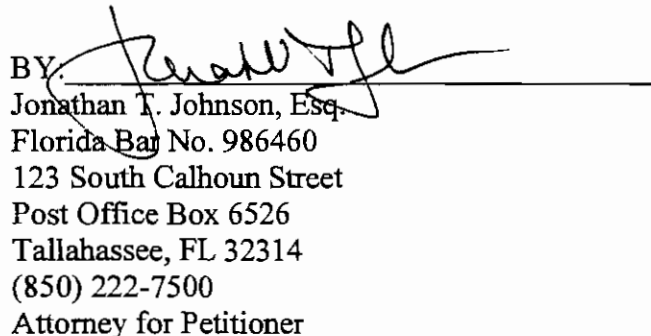 BY:
Jonathan T. Johnson, Esq.
Florida Bar No. 986460
123 South Calhoun Street
Post Office Box 6526
Tallahassee, FL 32314
(850) 222-7500
Attorney for Petitioner